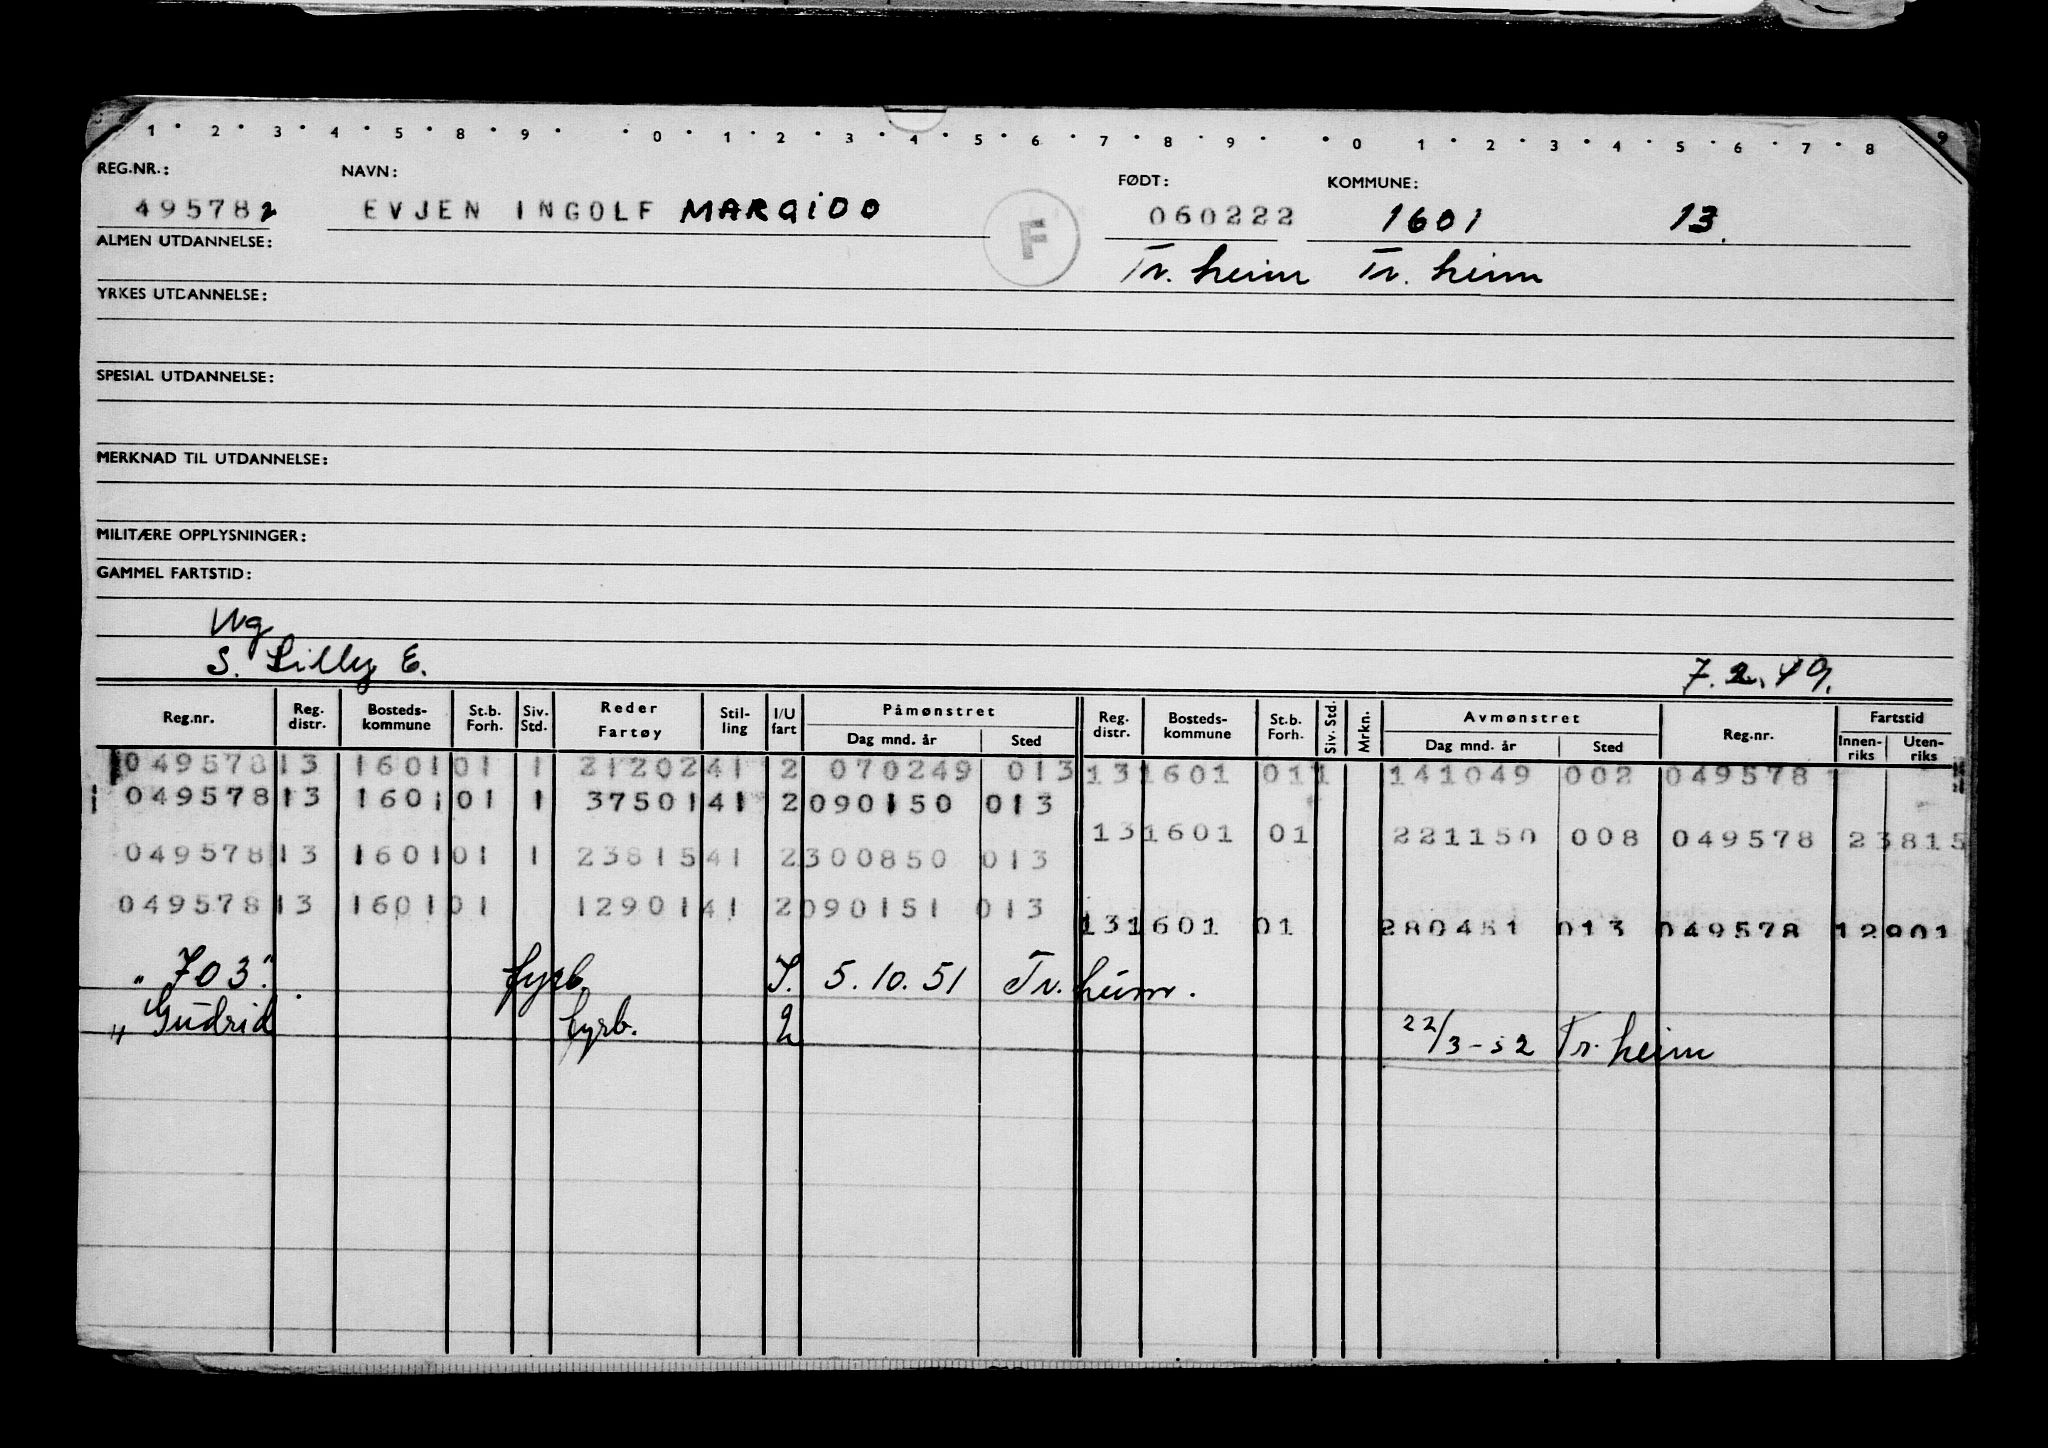 1 2 3 4 5 8 9 0 1 2 3 4 5 6 7 8 9 0 1 2 3 4 5 6 7 8 9
REG.NR.: NAVN: FØDT: KOMMUNE:
495782 EVJEN INGOLF MARGIDO F 060222 1601 13.
ALMEN UTDANNELSE: Tr. heim Tr. heim
YRKES UTDANNELSE:
SPESIAL UTDANNELSE:
MERKNAD TIL UTDANNELSE:
MILITÆRE OPPLYSNINGER:
GAMMEL FARTSTID:
Ug
S. Lilly E. 7.2.49.
Reg.nr. Reg. distr. Bosteds-kommune St.b. Forh. Siv. Std. Reder Fartøy Stil-ling I/U fart Påmønstret Dag mnd. år Sted Reg. distr. Bosteds-kommune St.b. Forh. Siv. Std. Mrkn. Avmønstret Dag mnd. år Sted Reg.nr. Fartstid Innen-riks Uten-riks
049578 13 1601 01 1 21202 41 2 070249 013 13 1601 01 1 141049 002 049578
049578 13 1601 01 1 37501 41 2 090150 013
13 1601 01 221150 008 049578 23815
049578 13 1601 01 1 23815 41 2 300850 013
049578 13 1601 01 12901 41 2 090151 013
13 1601 01 280451 013 049578 12901
"703". fyrb. I. 5.10.51 Tr. heim.
" Gudrid fyrb. 2 22/3-52 Tr. heim